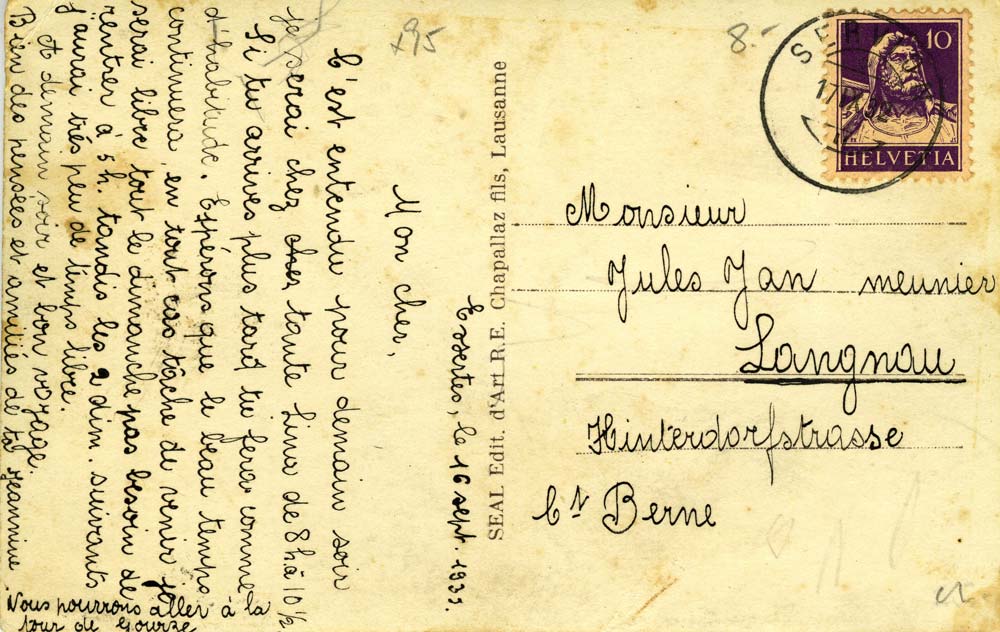 Essertes, le 16 sept. 1932.
Mon cher,
C'est entendu pour demain soir
je serai chez chez tante Lina de 8h à 10 ½
Si tu arrives plus tard tu feras comme
d'habitude. Espérons que le beau temps
continuera, en tout cas tâche de venir je
serai libre tout le dimanche pas besoin de
rentrer à 5 h. tandis les 2 dim. suivants
j'aurai très peu de temps libre.
A demain soir et bon voyage.
Bien des pensées et amitiés de ta Jeannine
Nous pourrons aller à la
tour de Gourze
SEAL Edit. d'Art R.E. Chapallaz fils, Lausanne
x95
8.-
10
HELVETIA
Monsieur
Jules Jan meunier
Langnau
Hinterdorfstrasse
Ct Berne